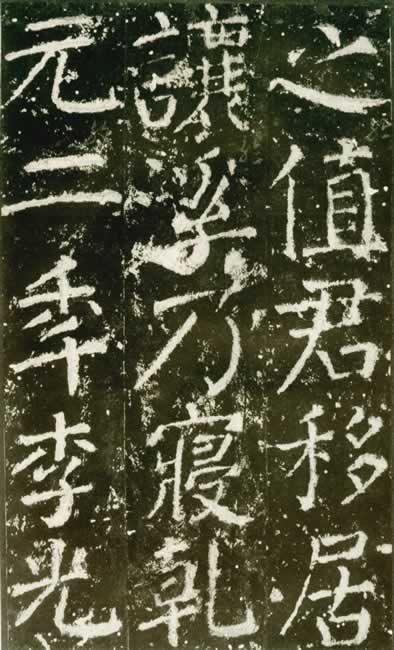 之值君移居
讓溪乃寢乾
元二秊李光